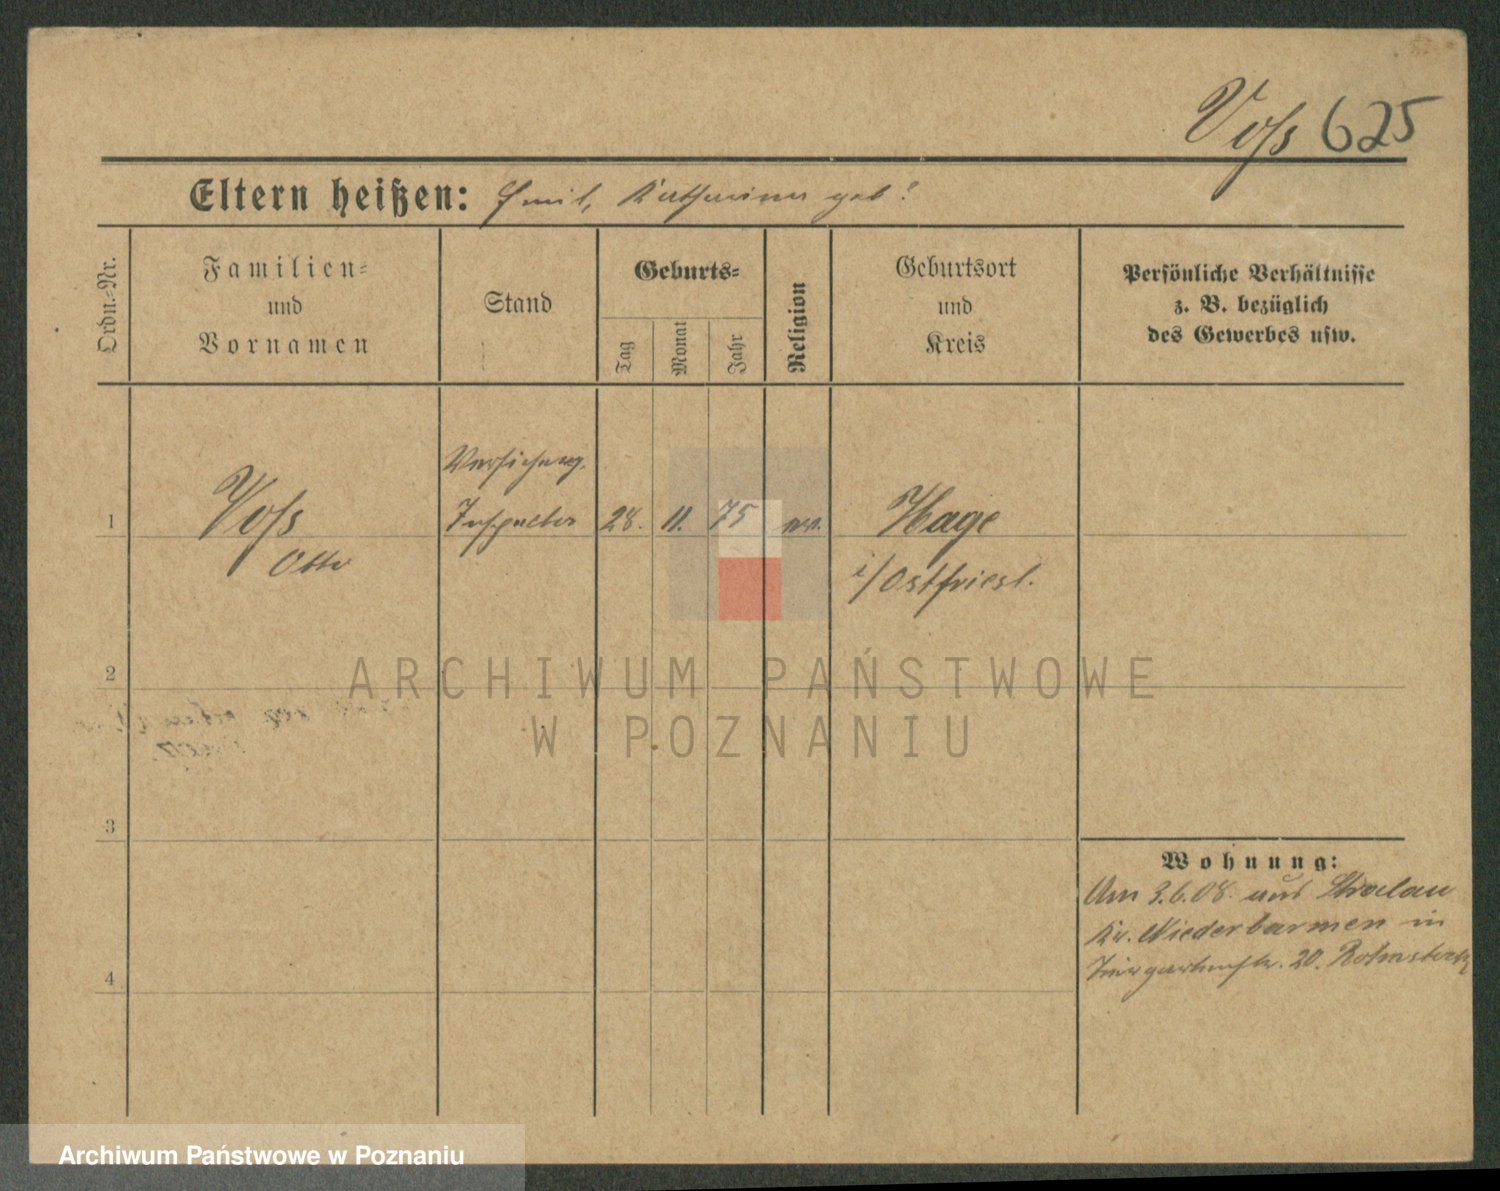 Voss 625
Eltern heißen: Emil, Katharina geb?
Ordn.-Nr.
Familien-
und
Vornamen
Stand
Geburts-
Tag
Monat
Jahr
Religion
Geburtsort
und
Kreis
Persönliche Verhältnisse
z. B. bezüglich
des Gewerbes usw.
Versicherung.
1 Voss Inspector 28. 11. 75 ev. Hage
Otto i/Ostfriesl.
2
ARCHIWUM PAŃSTWOWE
W POZNANIU
3
Wohnung:
Am 3.6.08. aus Stralau
Kr. Niederbarmen in
4 Tiergartenstr. 20.
Archiwum Państwowe w Poznaniu